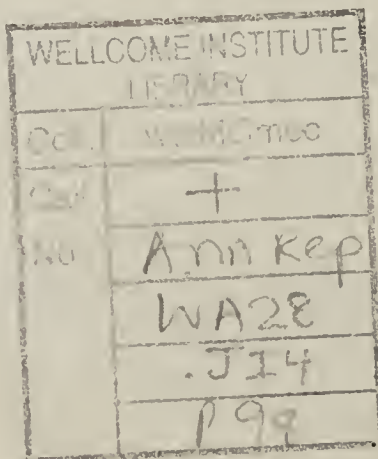 WELLCOME INSTITUTE
LIBRARY
Coll. welMOmec
Call
+
No. Ann Rep
WA28
.J14
P99